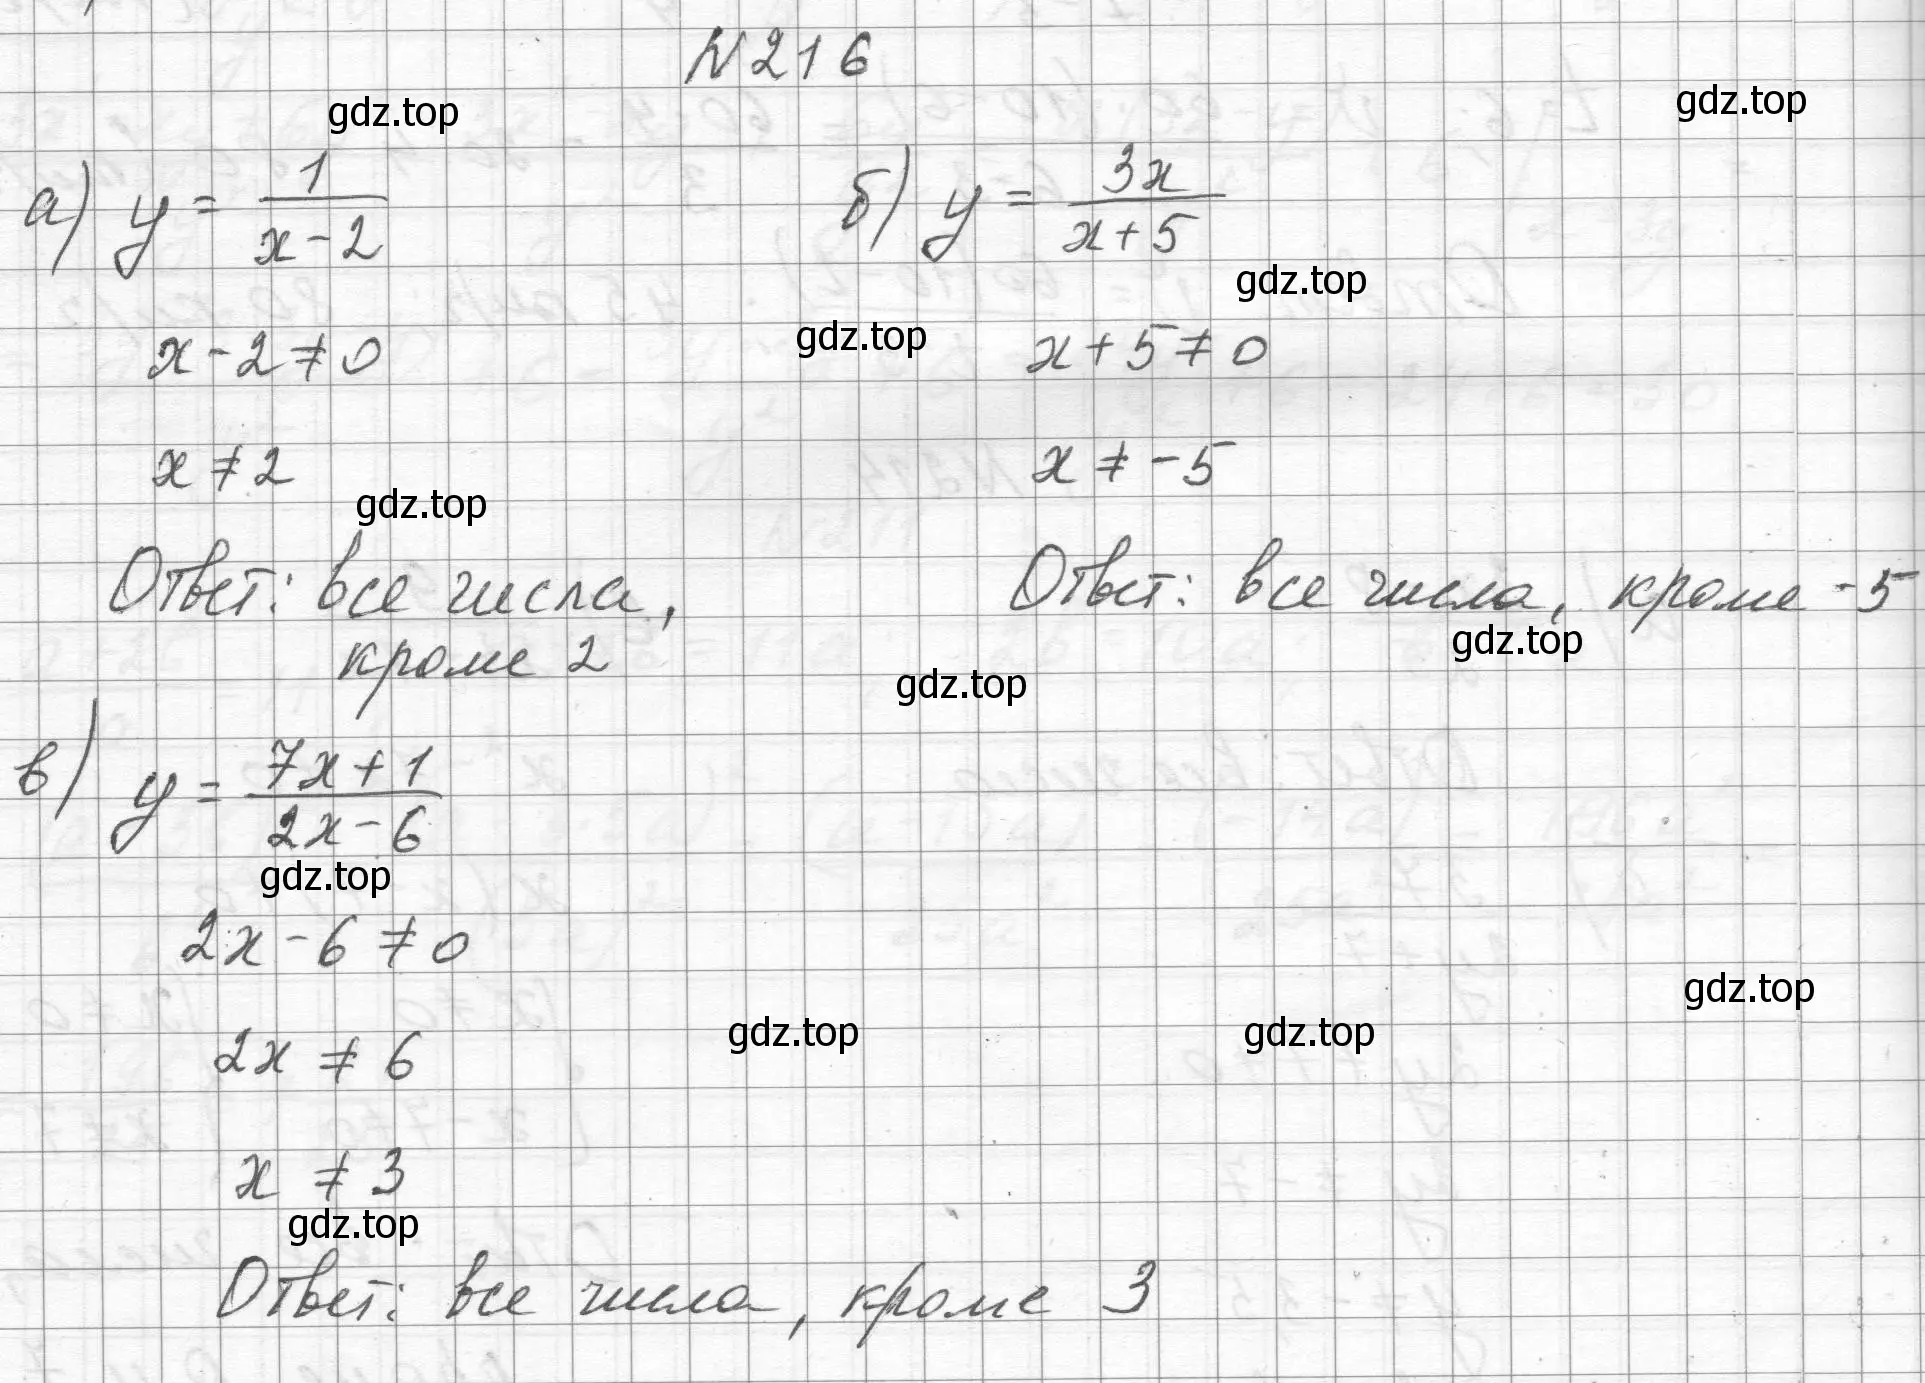 N216
gdz.top
gdz.top
а) y = 1/(x-2)
б) y = 3x/(x+5)
gdz.top
x-2≠0
gdz.top
x+5≠0
x≠2
x≠-5
gdz.top
Ответ: все числа,
кроме 2
Ответ: все числа, кроме -5
gdz.top
gdz.top
в) y = (7x+1)/(2x-6)
gdz.top
2x-6≠0
gdz.top
2x≠6
gdz.top
gdz.top
x≠3
gdz.top
Ответ: все числа, кроме 3